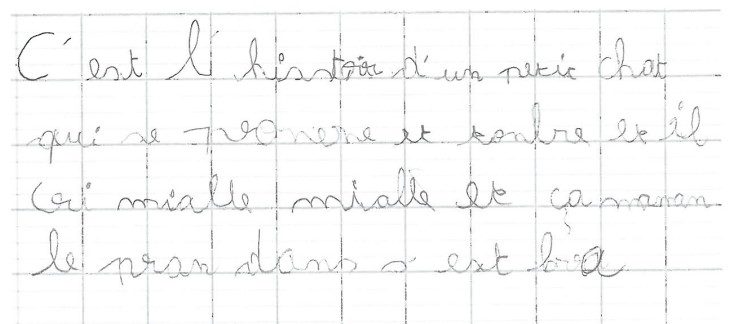 C'est l'histoir d'un petit chat
qui se promene et tonbre et il
cri mialle mialle et ça maman
le pran dans s'est bra